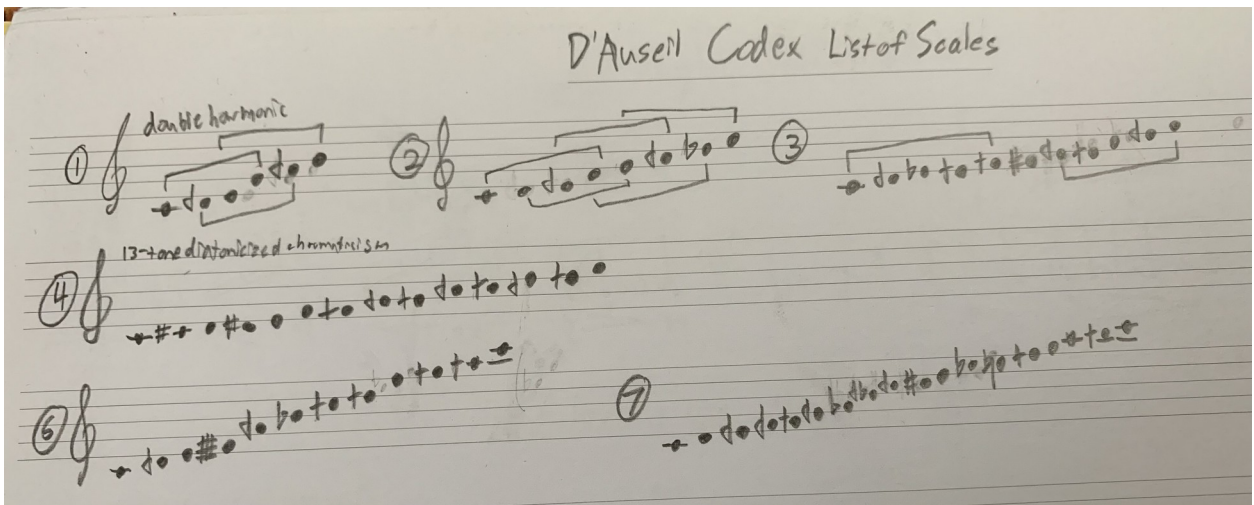 D'Auseil Codex List of Scales
① double harmonic
②
③
④ 13-tone diatonicized chromaticism
⑥
⑦